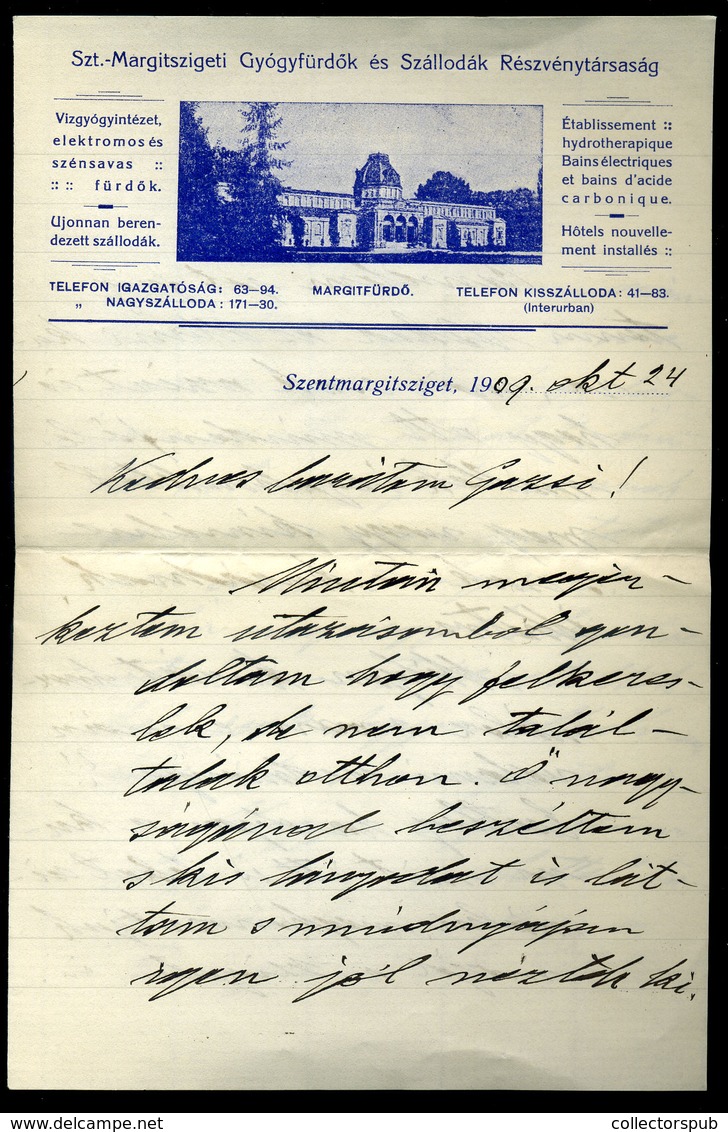 Szt.-Margitszigeti Gyógyfürdők és Szállodák Részvénytársaság
Vizgyógyintézet,
elektromos és
szénsavas ::
:: :: fürdők.
Ujonnan beren-
dezett szállodák.
Établissement ::
hydrotherapique
Bains électriques
et bains d'acide
carbonique.
Hôtels nouvelle-
ment installés ::
TELEFON IGAZGATÓSÁG: 63—94.
„ NAGYSZÁLLODA: 171—30.
MARGITFÜRDŐ.
TELEFON KISSZÁLLODA: 41—83.
(Interurban)
Szentmargitsziget, 1909. okt 24
Kedves barátom Gazsi!
Miután megér-
keztem utazásomból gon-
doltam hogy felkeres-
lek, de nem talál-
talak otthon. Ő nagy-
ságával beszéltem
s kis lányodat is lát-
tam s mindnyájan
igen jól néztek ki.
www.delcampe.net
collectorspub